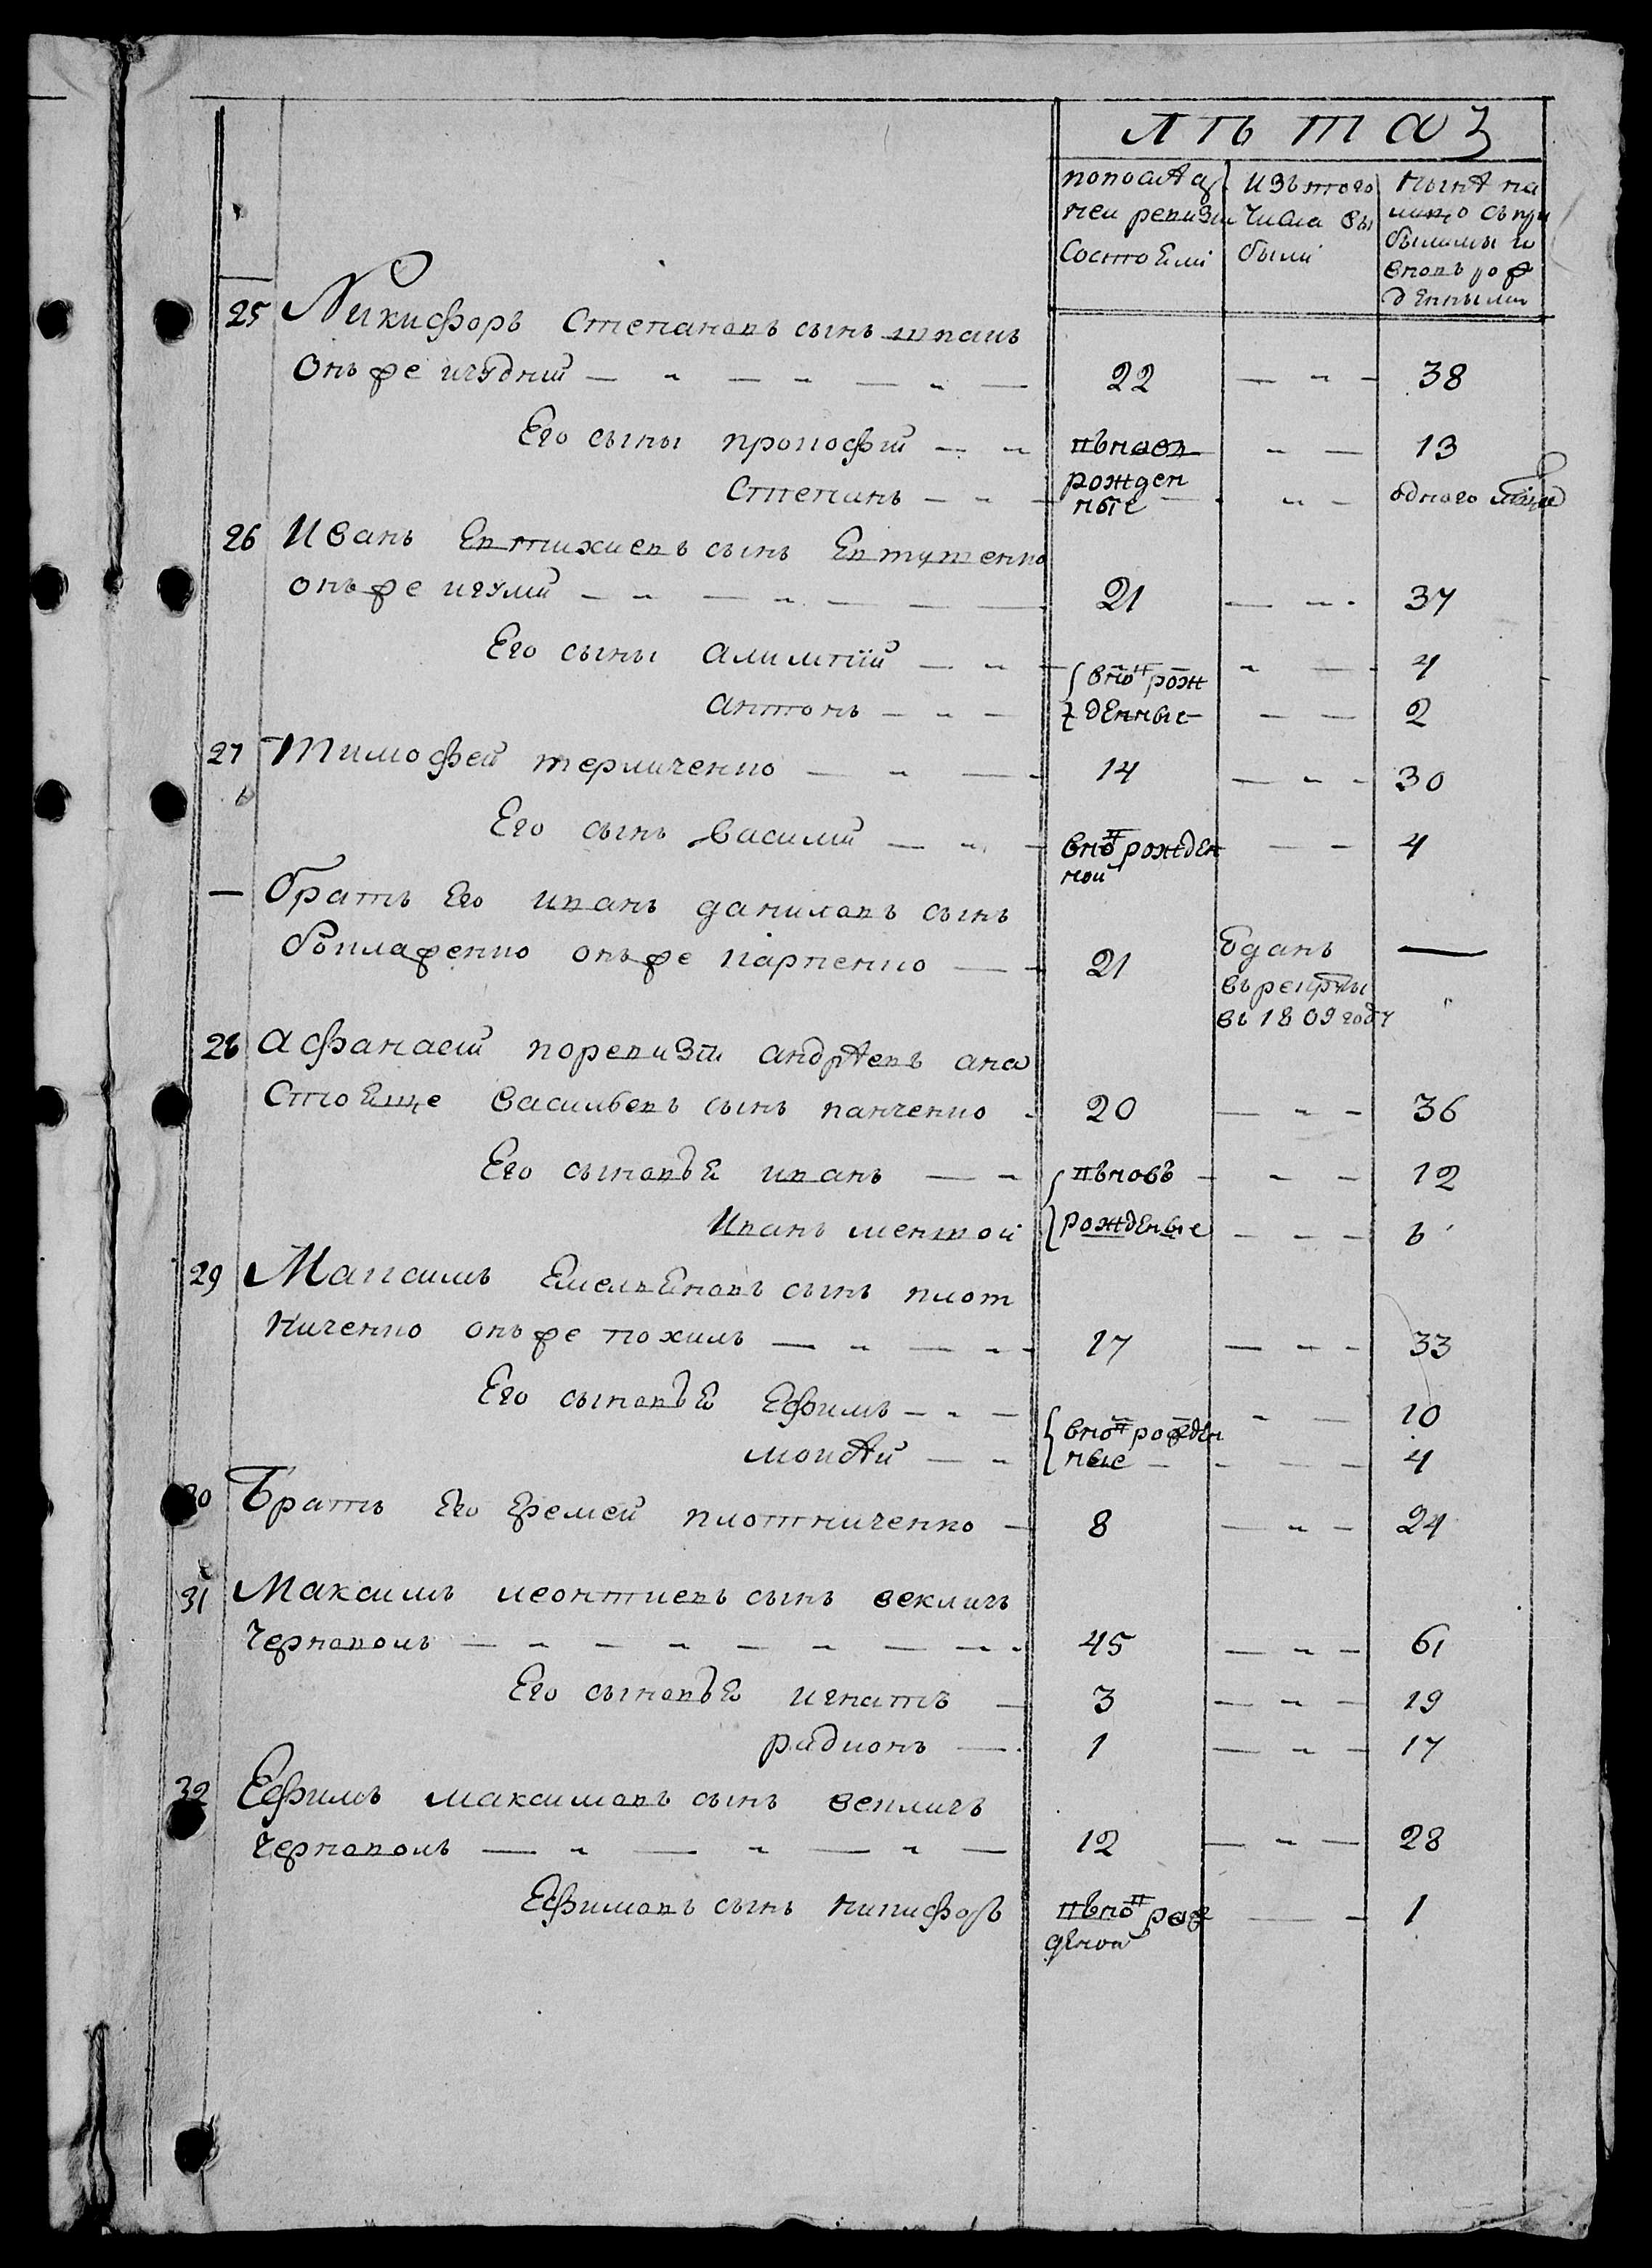 лѣта
попослѣд
ней ревизи
состояли
изътого
числа вы
были
нынѣ на
лицо съпри
былыми и
вновь рож
денными
25 Никифоръ Степановъ сынъ шпакъ
онъже нудний 22 38
Его сыны прокофий въновь 13
Степанъ рожден
ные одного
26 Иванъ Евтихиевъ сынъ Евтушенко
онъже 21 37
Его сыны алимпій вновь рож 4
антонъ денные 2
27 Тимофей терличенко 14 30
Его сынъ василий вновь рожден 4
ной
— братъ Его иванъ даниловъ сынъ
онъже карпенко 21 одданъ —
въ рекруты
въ 1809 году
28 афанасий поревизти андрѣевъ ана
стоЯще васильевъ сынъ панченко 20 36
Его сыновья иванъ въновь 12
Иванъ меншой рожденые 6
29 Макъсимъ Емельяновъ сынъ плот
ниченко онъже похилъ 17 33
Его сыновья Ефимъ вновь рожден 10
моисѣй ные 4
30 Братъ Его Еремей плотниченко 8 24
31 Максимъ леонтиевъ сынъ векличъ
чорноволъ 45 61
Его сыновья игнатъ 3 19
радионъ 1 17
32 Ефимъ максимовъ сынъ векличъ
чорноволъ 12 28
Ефимовъ сынъ никифоръ въновь рож 1
деной